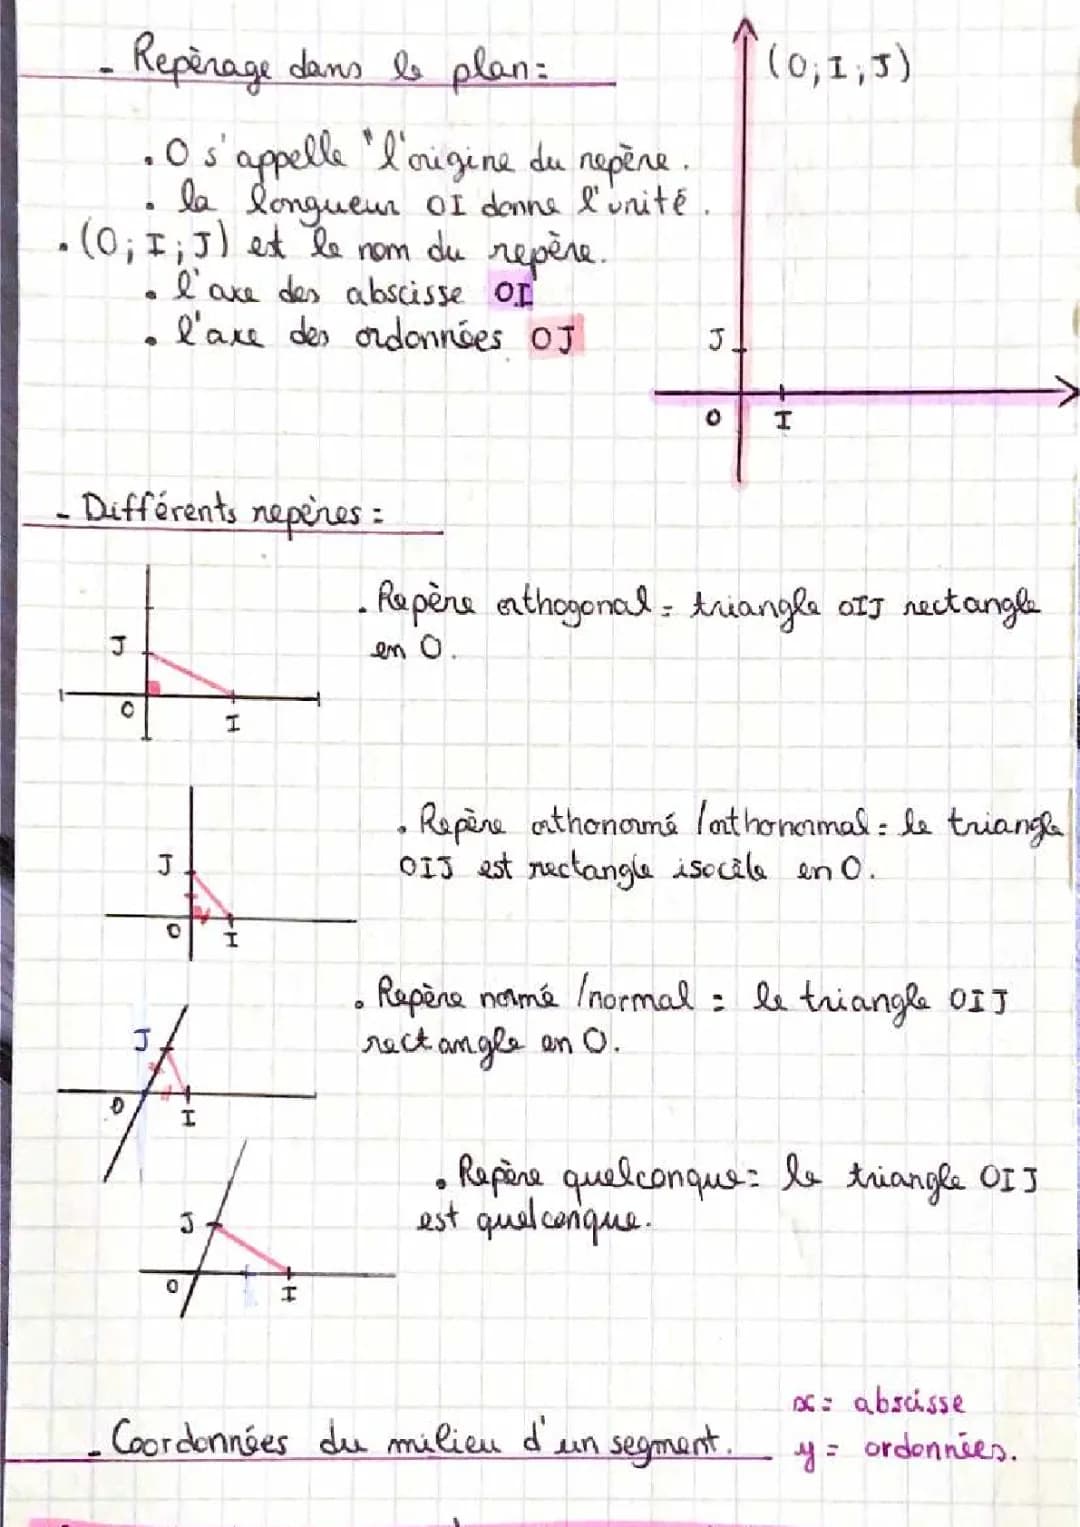 - Repèrage dans le plan:
(O; I; J)
. O s'appelle "l'origine du repère.
. la longueur OI donne l'unité.
. (O; I; J) est le nom du repère.
. l'axe des abscisse OI
. l'axe des ordonnées OJ
J
O I
- Différents repères:
. Repère orthogonal = triangle OIJ rectangle
en O.
J
O
I
. Repère orthonormé / orthonormal = le triangle
OIJ est rectangle isocèle en O.
J
O
I
. Repère normé / normal = le triangle OIJ
rectangle en O.
J
O
I
. Repère quelconque = le triangle OIJ
est quelconque.
J
O
I
x = abscisse
- Coordonnées du milieu d'un segment.
y = ordonnées.